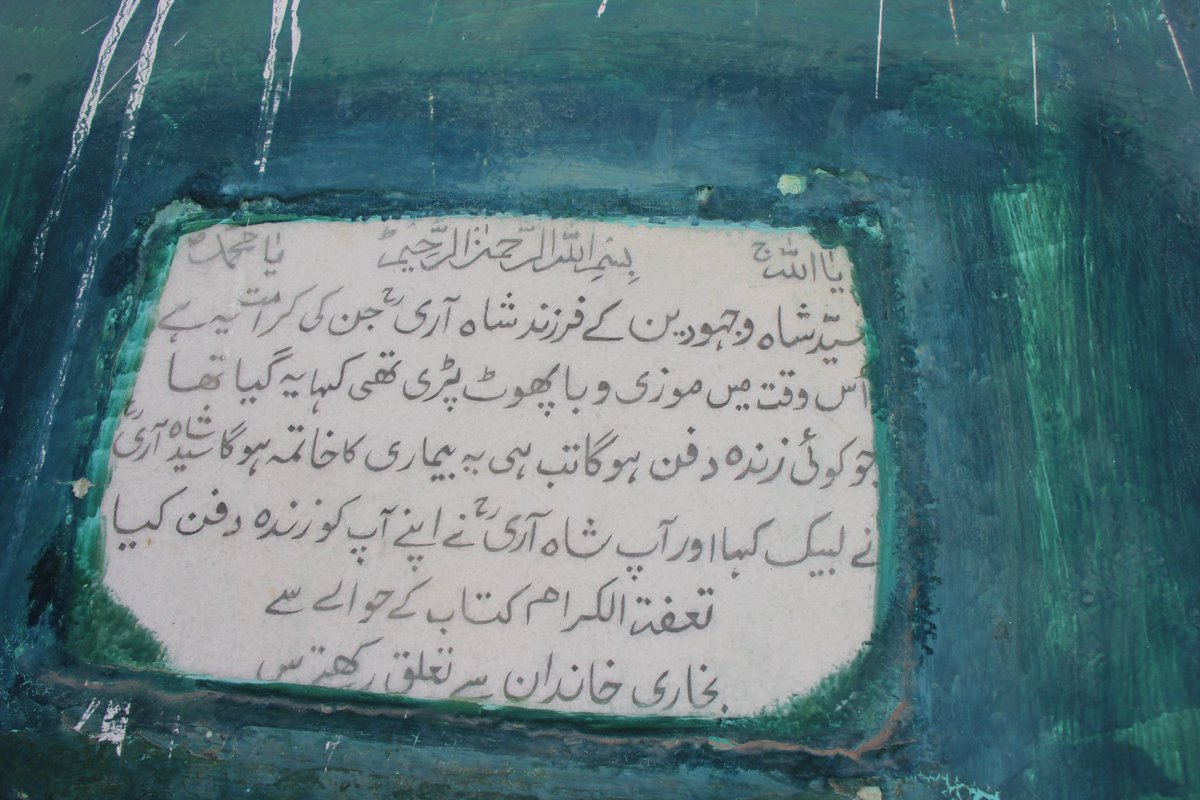 یا اللہ ج بِسْمِ اللّٰہِ الرَّحْمٰنِ الرَّحِیْمِ یا محمدؐ
سیّد شاہ وجہودین کے فرزند شاہ آری رح جن کی کرامت یہ ہے
اس وقت میں موزی وبا پھوٹ پڑی تھی کہا یہ گیا تھا
جو کوئی زندہ دفن ہوگا تب ہی یہ بیماری کا خاتمہ ہوگا سید شاہ آری رح
نے لبیک کہا اور آپ شاہ آری رح نے اپنے آپ کو زندہ دفن کیا
تعفۃ الکرام کتاب کے حوالے سے
بخاری خاندان سے تعلق رکھتے